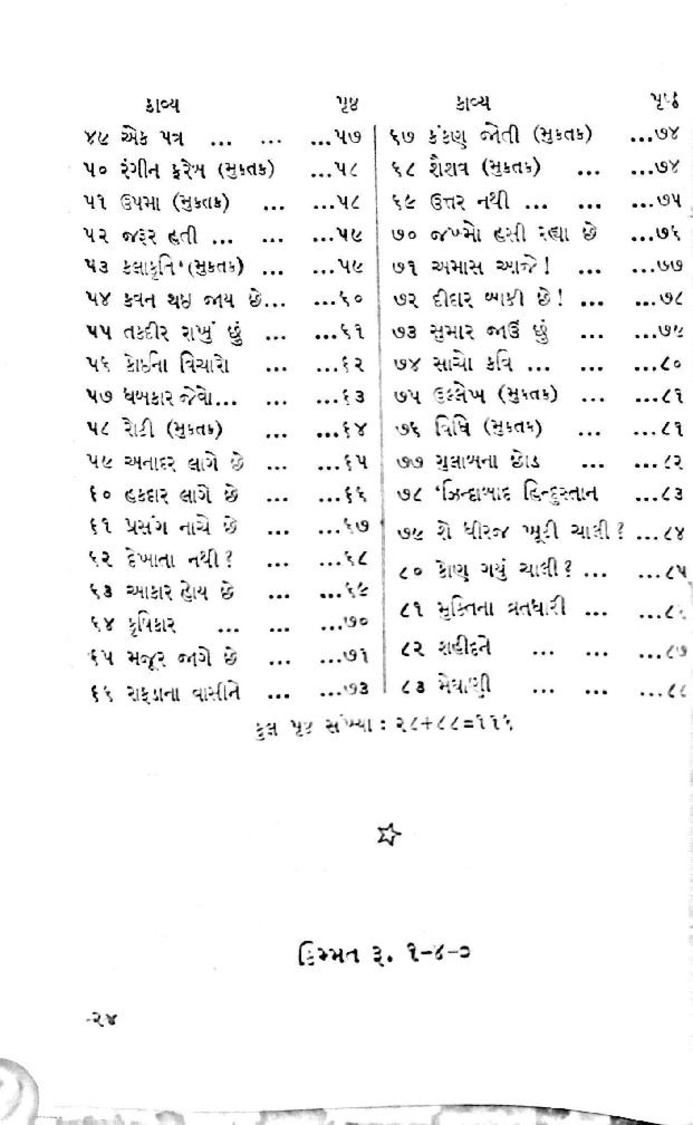 કાવ્ય પૃષ્ઠ
૪૯ એક પત્ર ... ... ...૫૭
૫૦ રંગીન ફરેબ (મુક્તક) ...૫૮
૫૧ ઉપમા (મુક્તક) ... ...૫૮
૫૨ જરૂર હતી ... ... ...૫૯
૫૩ કલાકૃતિ (મુક્તક) ... ...૫૯
૫૪ કવન થઇ જાય છે... ...૬૦
૫૫ તકદીર રાખું છું ... ...૬૧
૫૬ કોઇના વિચારો ... ...૬૨
૫૭ ધબકાર જેવો... ... ...૬૩
૫૮ રોટી (મુક્તક) ... ...૬૪
૫૯ અનાદર લાગે છે ... ...૬૫
૬૦ હકદાર લાગે છે ... ...૬૬
૬૧ પ્રસંગ નાચે છે ... ...૬૭
૬૨ દેખાતા નથી? ... ...૬૮
૬૩ આકાર હોય છે ... ...૬૯
૬૪ કૃષિકાર ... ... ...૭૦
૬૫ મજૂર જાગે છે ... ...૭૧
૬૬ રાફડાના વાસીને ... ...૭૩
કાવ્ય પૃષ્ઠ
૬૭ કંકણ જોતી (મુક્તક) ...૭૪
૬૮ શૈશવ (મુક્તક) ... ...૭૪
૬૯ ઉત્તર નથી ... ... ...૭૫
૭૦ જખ્મો હસી રહ્યા છે ...૭૬
૭૧ અમાસ આજે! ... ...૭૭
૭૨ દીદાર બાકી છે! ... ...૭૮
૭૩ સુમાર જાઉં છું ... ...૭૯
૭૪ સાચો કવિ ... ... ...૮૦
૭૫ ઉલ્લેખ (મુક્તક) ... ...૮૧
૭૬ વિધિ (મુક્તક) ... ...૮૧
૭૭ ગુલાબના છોડ ... ...૮૨
૭૮ ‘ઝિન્દાબાદ હિન્દુસ્તાન ...૮૩
૭૯ શે ધીરજ ખૂટી ચાલી? ...૮૪
૮૦ કોણ ગયું ચાલી? ... ...૮૫
૮૧ મુક્તિના વ્રતધારી ... ...૮૬
૮૨ શહીદને ... ... ...૮૭
૮૩ મેઘાણી ... ... ...૮૮
કુલ પૃષ્ઠ સંખ્યા : ૨૮+૮૮=૧૧૬
કિમ્મત રૂ. ૧-૪-૦
૨૪